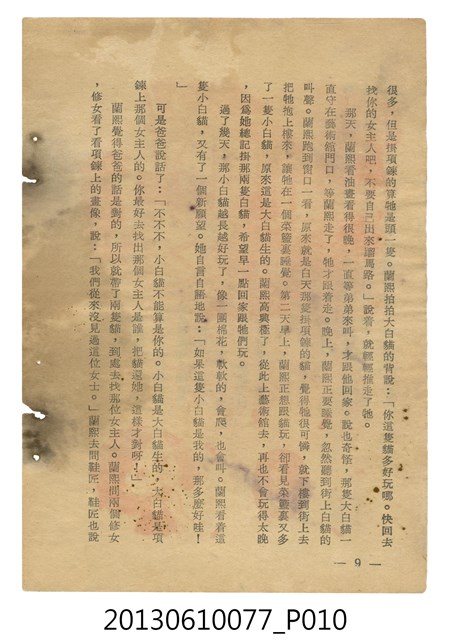 很多，但是掛項鍊的算牠是頭一隻。蘭熙拍拍大白貓的背說：「你這隻貓多好玩哪。快回去
找你的女主人吧，不要自己出來蹓馬路。」說着，就輕輕推走了牠。
那天，蘭熙看油畫看得很晚，一直等弟弟來叫，才跟他回家。說也奇怪，那隻大白貓一
直守在藝術館門口，等蘭熙走了，牠才跟着走。晚上，蘭熙正要睡覺，忽然聽到街上白貓的
叫聲。蘭熙跑到窗口一看，原來就是白天那隻掛項鍊的貓，覺得牠很可憐，就下樓到街上去
把牠抱上樓來，讓牠在一個菜籃裏睡覺。第二天早上，蘭熙正想跟貓玩，卻看見菜籃裏又多
了一隻小白貓，原來這是大白貓生的。蘭熙高興極了，從此上藝術館去，再也不會玩得太晚
，因爲她總記掛那兩隻白貓，希望早一點回家跟牠們玩。
過了幾天，那小白貓越長越好玩了，像一團棉花，軟軟的，會爬，也會叫。蘭熙看着這
隻小白貓，又有了一個新願望。她自言自語地說：「如果這隻小白貓是我的，那多麼好哇！
」
可是爸爸說話了：「不不不，小白貓不能算是你的。小白貓是大白貓生的，大白貓是項
鍊上那個女主人的。你最好去找出那個女主人是誰，把貓還她，這樣才對呀！」
蘭熙覺得爸爸的話是對的，所以就帶了兩隻貓，到處去找那位女主人。蘭熙問兩個修女
，修女看了看項鍊上的畫像，說：「我們從來沒見過這位女士。」蘭熙去問鞋匠，鞋匠也說
— 9 —
20130610077_P010